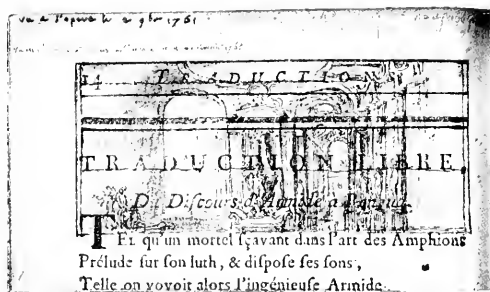 vu a l'opera le 2 9bre 1761
14 TRADUCTIONS
TRADUCTION LIBRE
Du Discours d'Armide à
TEL qu'un mortel sçavant dans l'art des Amphions
Prélude sur son luth, & dispose ses sons,
Telle on voyoit alors l'ingénieuse Armide